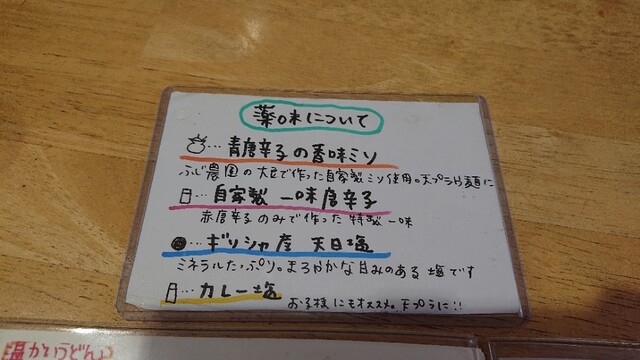 薬味について
…青唐辛子の香味ミソ
ふじ農園の大豆で作った自家製ミソ使用。天プラや麺に
…自家製 一味唐辛子
赤唐辛子のみで作った特製一味
…ギリシャ産 天日塩
ミネラルたっぷり。まろやかな甘みのある塩です
…カレー塩
お子様にもオススメ。天プラに!!
温かいうどん